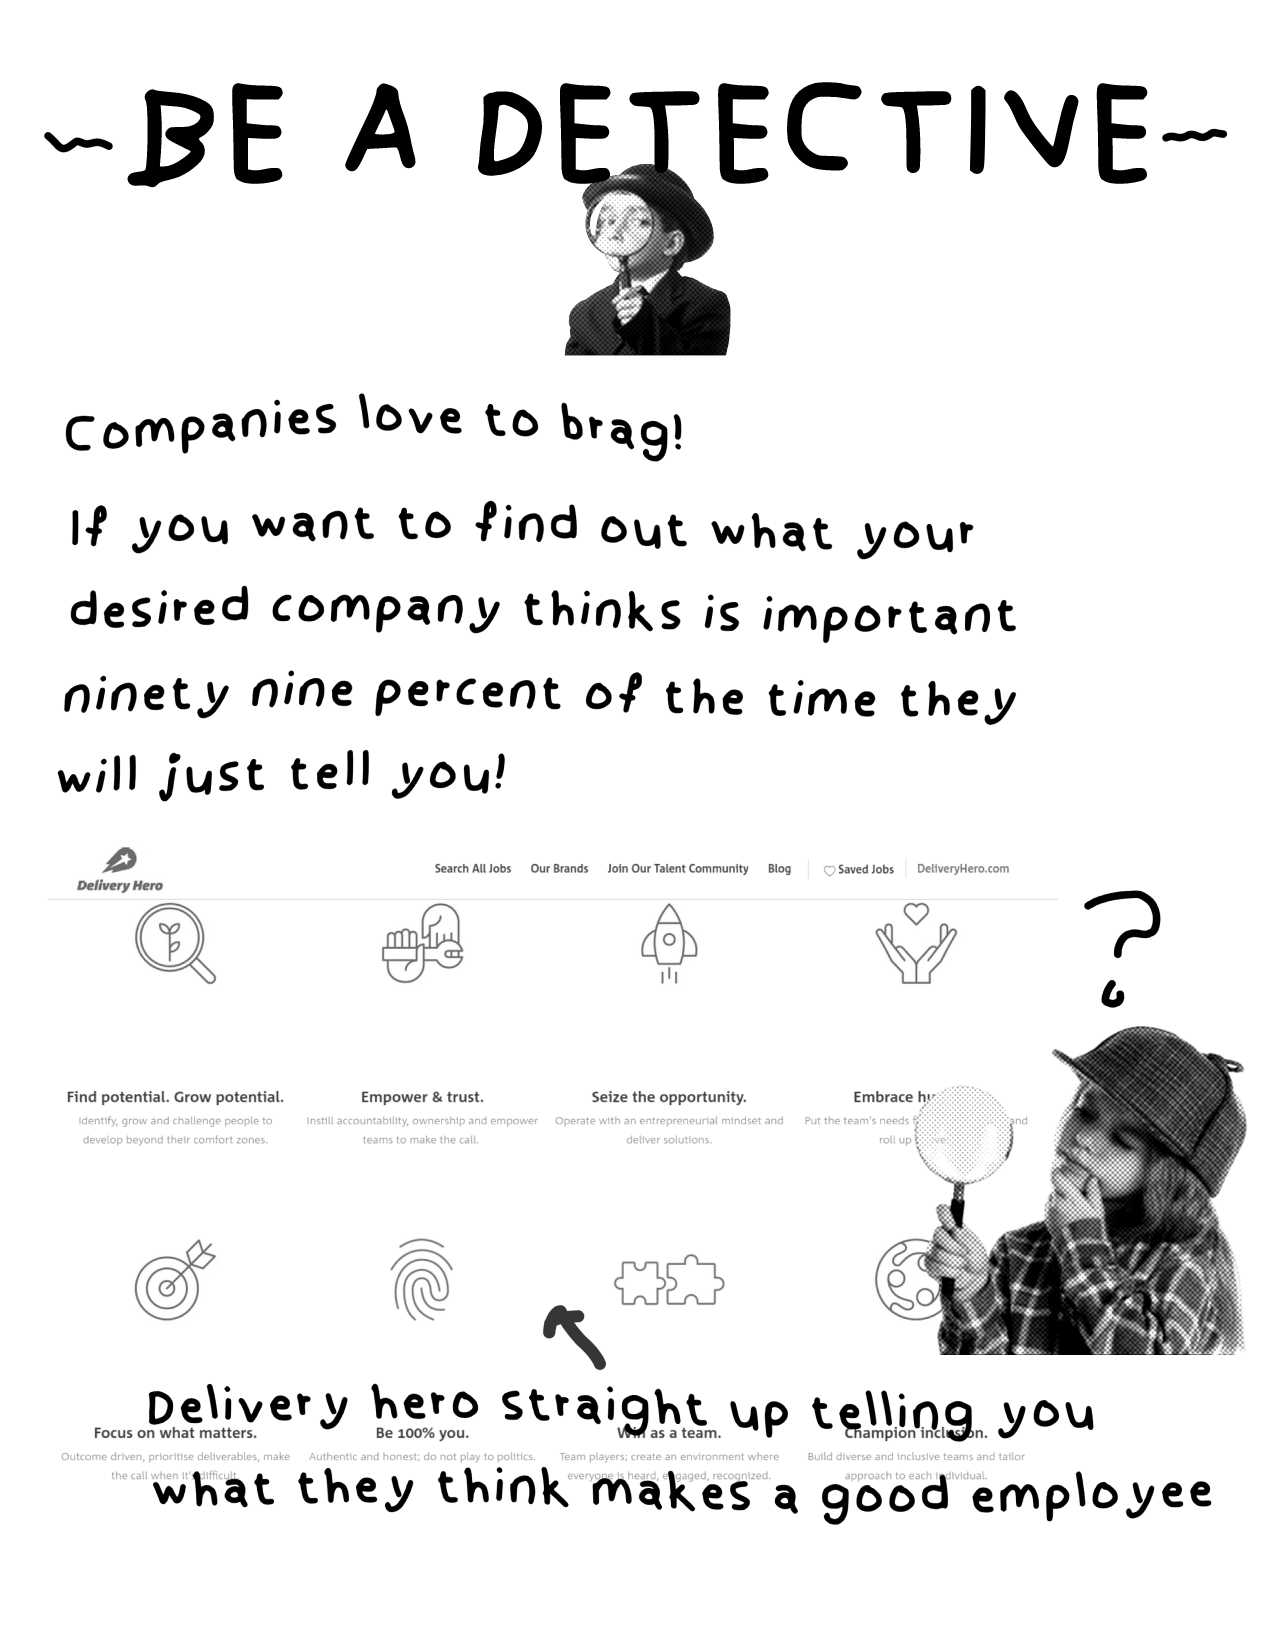 ~BE A DETECTIVE~
Companies love to brag!
If you want to find out what your
desired company thinks is important
ninety nine percent of the time they
will just tell you!
Delivery Hero
Search All Jobs Our Brands Join Our Talent Community Blog Saved Jobs DeliveryHero.com
?
Find potential. Grow potential.
Identify, grow and challenge people to
develop beyond their comfort zones.
Empower & trust.
Instill accountability, ownership and empower
teams to make the call.
Seize the opportunity.
Operate with an entrepreneurial mindset and
deliver solutions.
Embrace
Put the team's needs and
roll up
Delivery hero straight up telling you
Focus on what matters.
Outcome driven, prioritise deliverables, make
the call when it's difficult.
Be 100% you.
Authentic and honest; do not play to politics.
Win as a team.
Team players; create an environment where
everyone is heard, engaged, recognized.
Champion inclusion.
Build diverse and inclusive teams and tailor
approach to each individual.
what they think makes a good employee